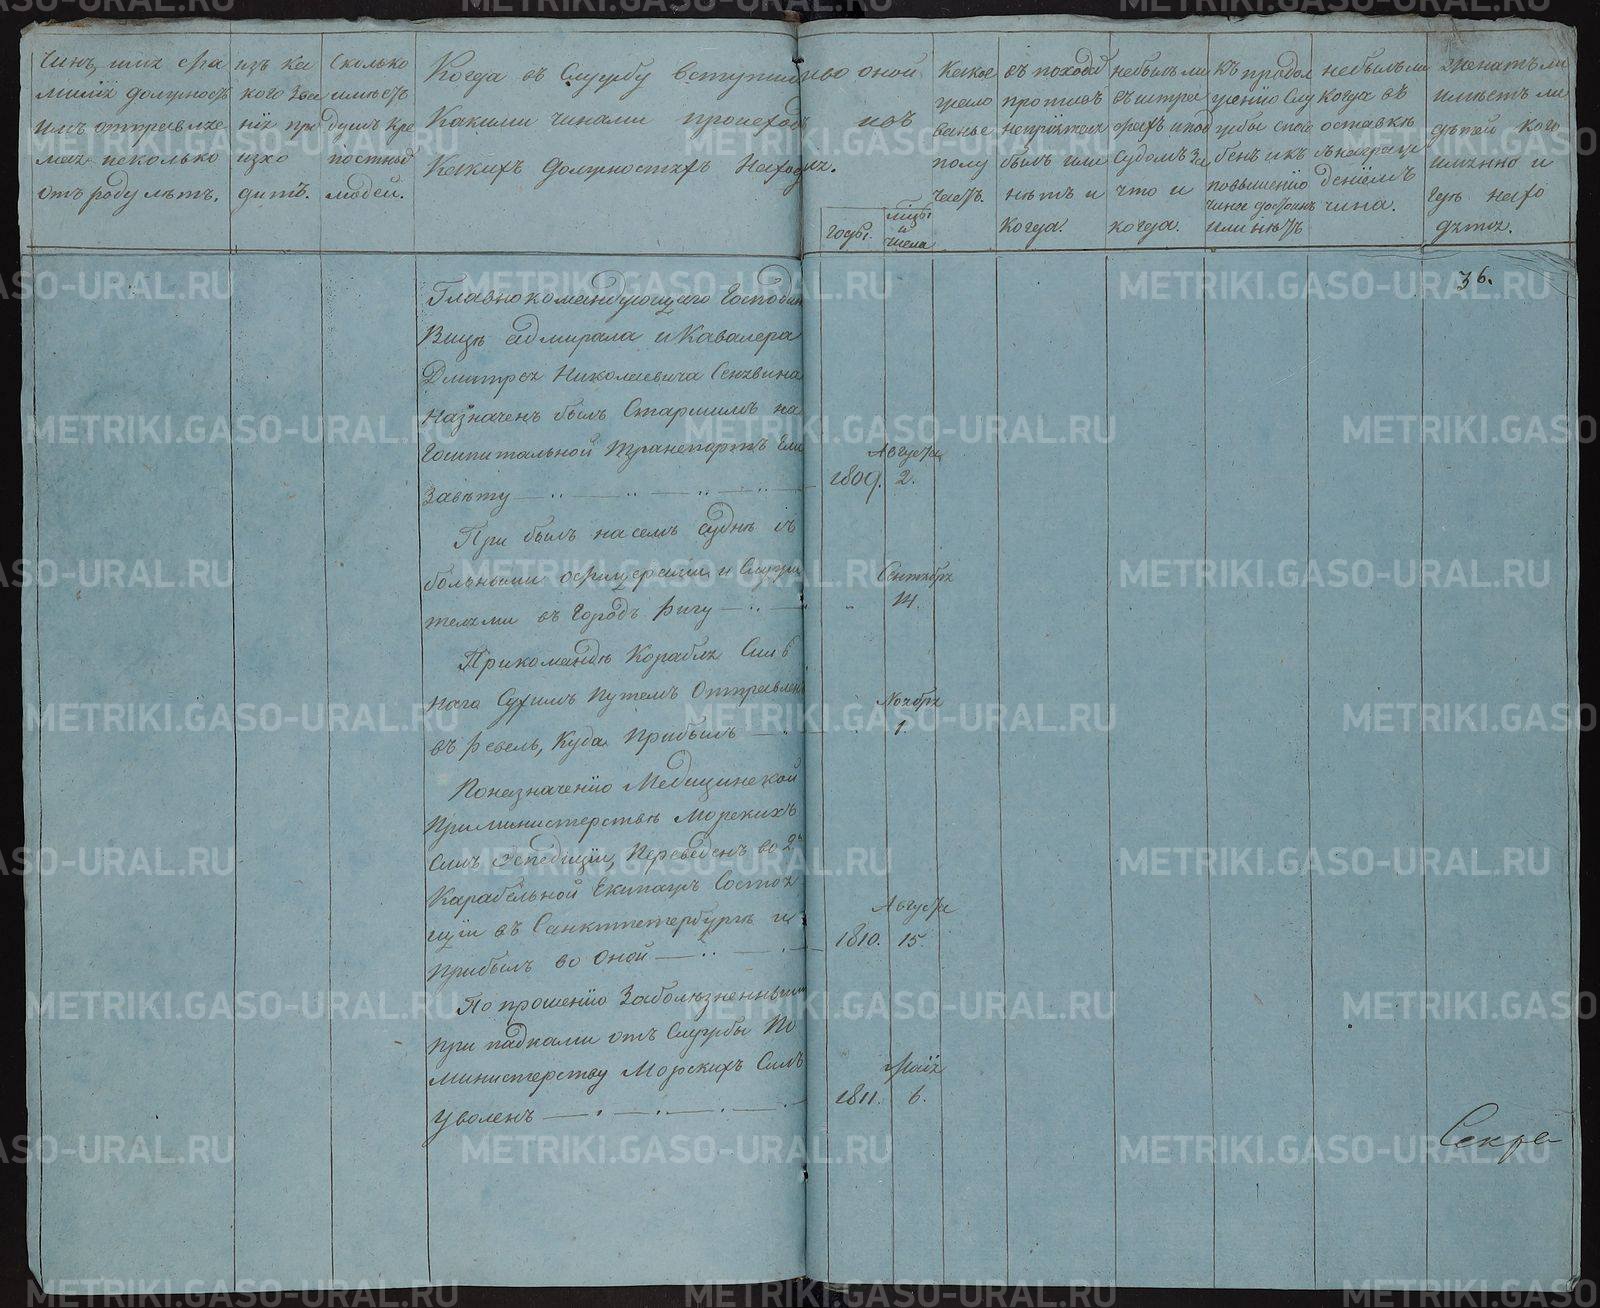 Чинъ, имя фа
милiя должность
имъ отправляе
мая несколько
отъ роду лѣтъ.
изъ ка
кого зва
нiя про
изхо
дитъ.
Сколько
имѣетъ
душъ кре
постныхъ
людей.
Когда въ Службу вступилъ и во оной
Какими чинами происходилъ и въ
Какихъ должностяхъ находился.
годы.
мцы
и
числа
Какое
жало
ванье
полу
чаетъ.
въ походахъ
противъ
непрiятеля
былъ или
нѣтъ и
Когда.
небылъ ли
въ штра
фахъ и под
Судомъ за
что и
когда.
Къ продол
женiю Слу
жбы спосо
бенъ и къ
повышенiю
чина достоинъ
или нѣтъ
небылъ ли
Когда въ
отставкѣ
съ награж
денiемъ
чина.
Женатъ ли
имѣетъ ли
дѣтей кого
имянно и
гдѣ нахо
дятся.
36.
Главнокомандующаго Господина
Вице адмирала и Кавалера
Дмитрея Николаевича Сенявина
Назначенъ былъ Старшимъ на
Гошпитальной Транспортъ Ели
Завѣту
Августа
1809. 2.
При былъ на семъ судне съ
больными офицерами и Служи
телями въ Городъ Ригу
Сентября
14.
При командѣ Корабля Силь
наго Сухимъ Путемъ Отправленъ
въ Ревель, Куда Прибылъ
Ноября
1.
По назначенiю Медицинской
При министерствѣ Морскихъ
Силъ Эспедицiи, Переведенъ во 2й
Карабельной Екипажъ Состоя
щiи въ Санктпетербургѣ и
Прибылъ во Оной
Августа
1810. 15.
По прошенiю За болѣзненными
при падками отъ Службы По
министерству Морскихъ Силъ
Уволенъ
Маiя
1811. 6.
Секре-
METRIKI.GASO-URAL.RU